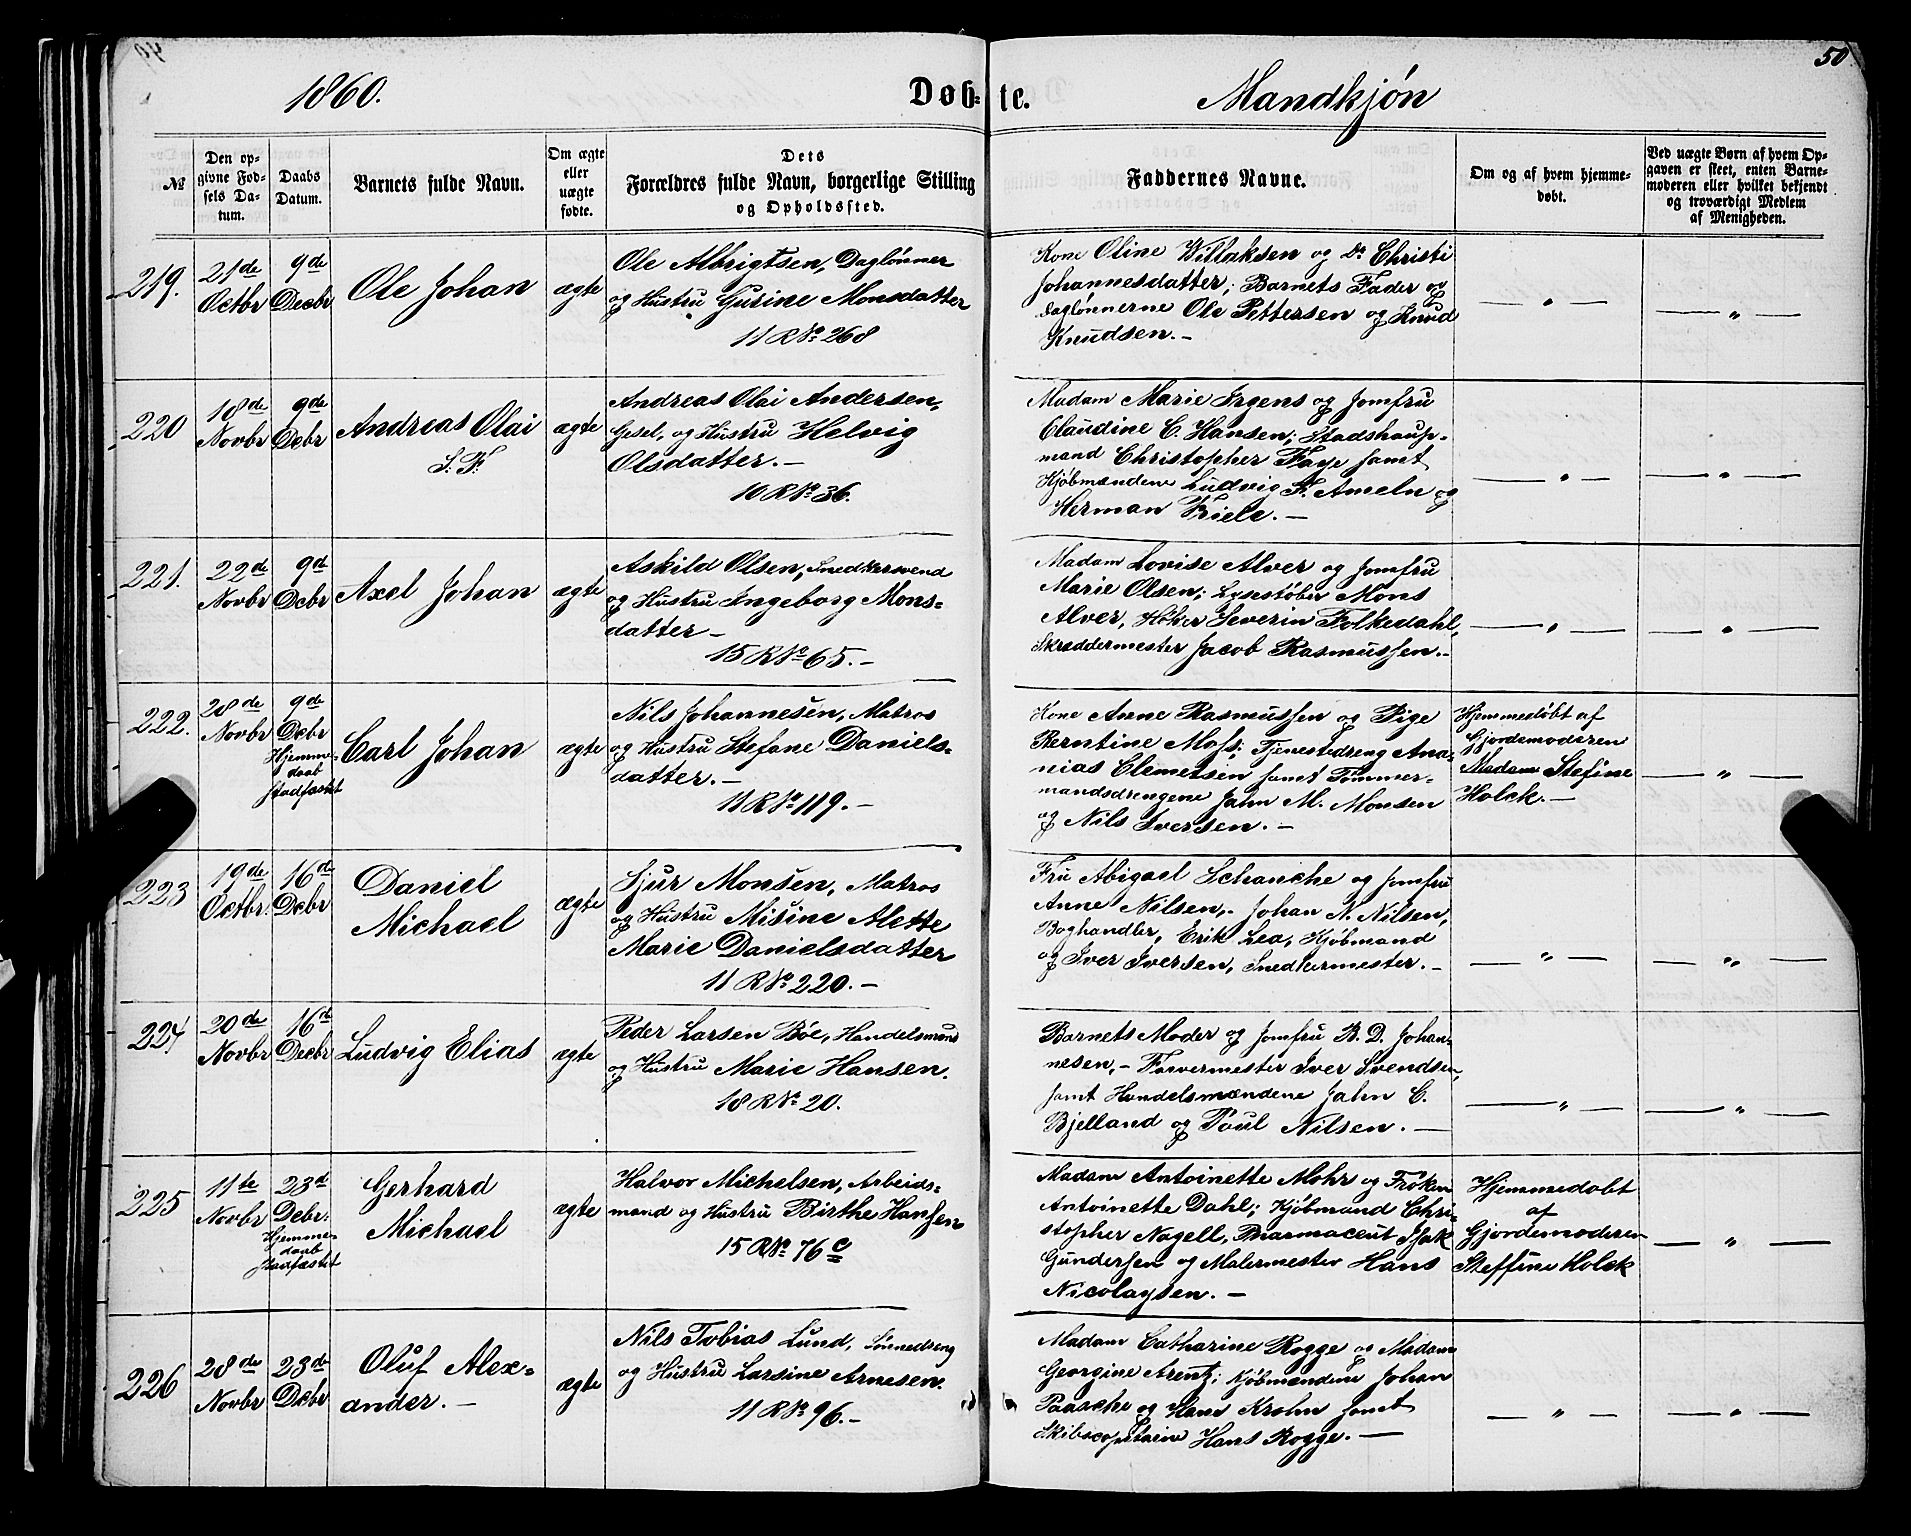 50
1860.
Døbte.
Mandkjøn
№
Den op-
givne Fød-
sels Da-
tum.
Daabs
Datum.
Barnets fulde Navn.
Om ægte
eller
uægte
fødte.
Dets
Forældres fulde Navn, borgerlige Stilling
og Opholdssted.
Faddernes Navne.
Om og af hvem hjemme-
døbt.
Ved uægte Børn af hvem Op-
gaven er skeet, enten Barne-
moderen eller hvilket bekjendt
og troværdigt Medlem
af Menigheden.
219.
21de
Octbr
9de
Decbr
Ole Johan
ægte
Ole Albrigtsen, Daglønner
og Hustru Gurine Monsdatter
11 R № 268
Kone Oline Villaksen og Do Christi
Johannesdatter; Barnets Fader og
Daglønnerne Ole Pettersen og Knud
Knudsen.-
— " —
— " —
220
18de
Novbr
9de
Decbr
Andreas Olai
S. F.
ægte
Andreas Olai Andersen,
Gesel, og Hustru Helvig
Olsdatter.-
10 R № 36.
Madam Marie Irgens og Jomfru
Claudine C. Hansen; Stadshaup-
mand Christopher Faye samt
Kjøbmændene Ludvig F. Ameln og
Herman Biele.-
— " —
— " —
221.
22de
Novbr
9de
Debr
Axel Johan
ægte
Askild Olsen, Snedkersvend
og Hustru Ingeborg Mons-
datter-
15 R № 65.-
Madam Lovise Alver og Jomfru
Marie Olsen; Lysestøber Mons
Alver, Høker Severin Folkedahl,
Skræddermester Jacob Rasmussen.-
— " —
— " —
222.
28de
Novbr
9de
Decbr
Hjemme-
daab
stadfæstet
Carl Johan
ægte
Nils Johannesen, Matros
og Hustru Stefane Daniels-
datter.-
11 R № 119.-
Kone Anne Rasmussen og Pige
Berntine Moss; Tjenestedreng Ana-
nias Clemetsen samt Tømmer-
mandsdrengene Jahn M. Monsen
og Nils Iversen.-
Hjemmedøbt af
Gjordemoderen
Madam Stefine
Holck.-
— " —
223
19de
Octbr.
16de
Decbr
Daniel
Michael
ægte
Sjur Monsen, Matros
og Hustru Misine Alette
Marie Danielsdatter
11 R № 220.-
Fru Abigael Schanche og Jomfru
Anne Nilsen,- Johan N. Nilsen,
Boghandler, Erik Lea, Kjøbmand
og Iver Iversen, Snedkermester.-
— " —
— " —
224
20de
Novbr
16de
Decbr
Ludvig Elias
ægte
Peder Larsen Bøe, Handelsmand
og Hustru Marie Hansen.
18 R № 20.
Barnets Moder og Jomfru B. D. Johan-
nesen,- Farvermester Iver Svendsen,
samt Handelsmændene Jahn C.
Bjelland og Poul Nilsen.-
— " —
— " —
225
11te
Novbr
23de
Debr.
Hjemme-
daab
stadfæstet
Gerhard
Michael
ægte
Halvor Michelsen, Arbeids-
mand og Hustru Birthe Hansen
15 R № 76c
Madam Antoinette Mohr og Frøken
Antoinette Dahl; Kjøbmand Chri-
stopher Nagell, Pharmaceut Isak
Gundersen og Malermester Hans
Nicolaysen.-
Hjemmedøbt
af
Gjordemoderen
Steffine Holck
— " —
226
28de
Novbr
23de
Debr
Oluf Alex-
ander.-
ægte
Nils Tobias Lund,
og Hustru Larsine Arnesen.
11 R № 96.-
Madam Catharine Rogge og Madam
Georgine Arentz; Kjøbmændene Johan
Paasche og Hans Krohn samt
Skibscapitaine Hans Rogge.-
— " —
— " —